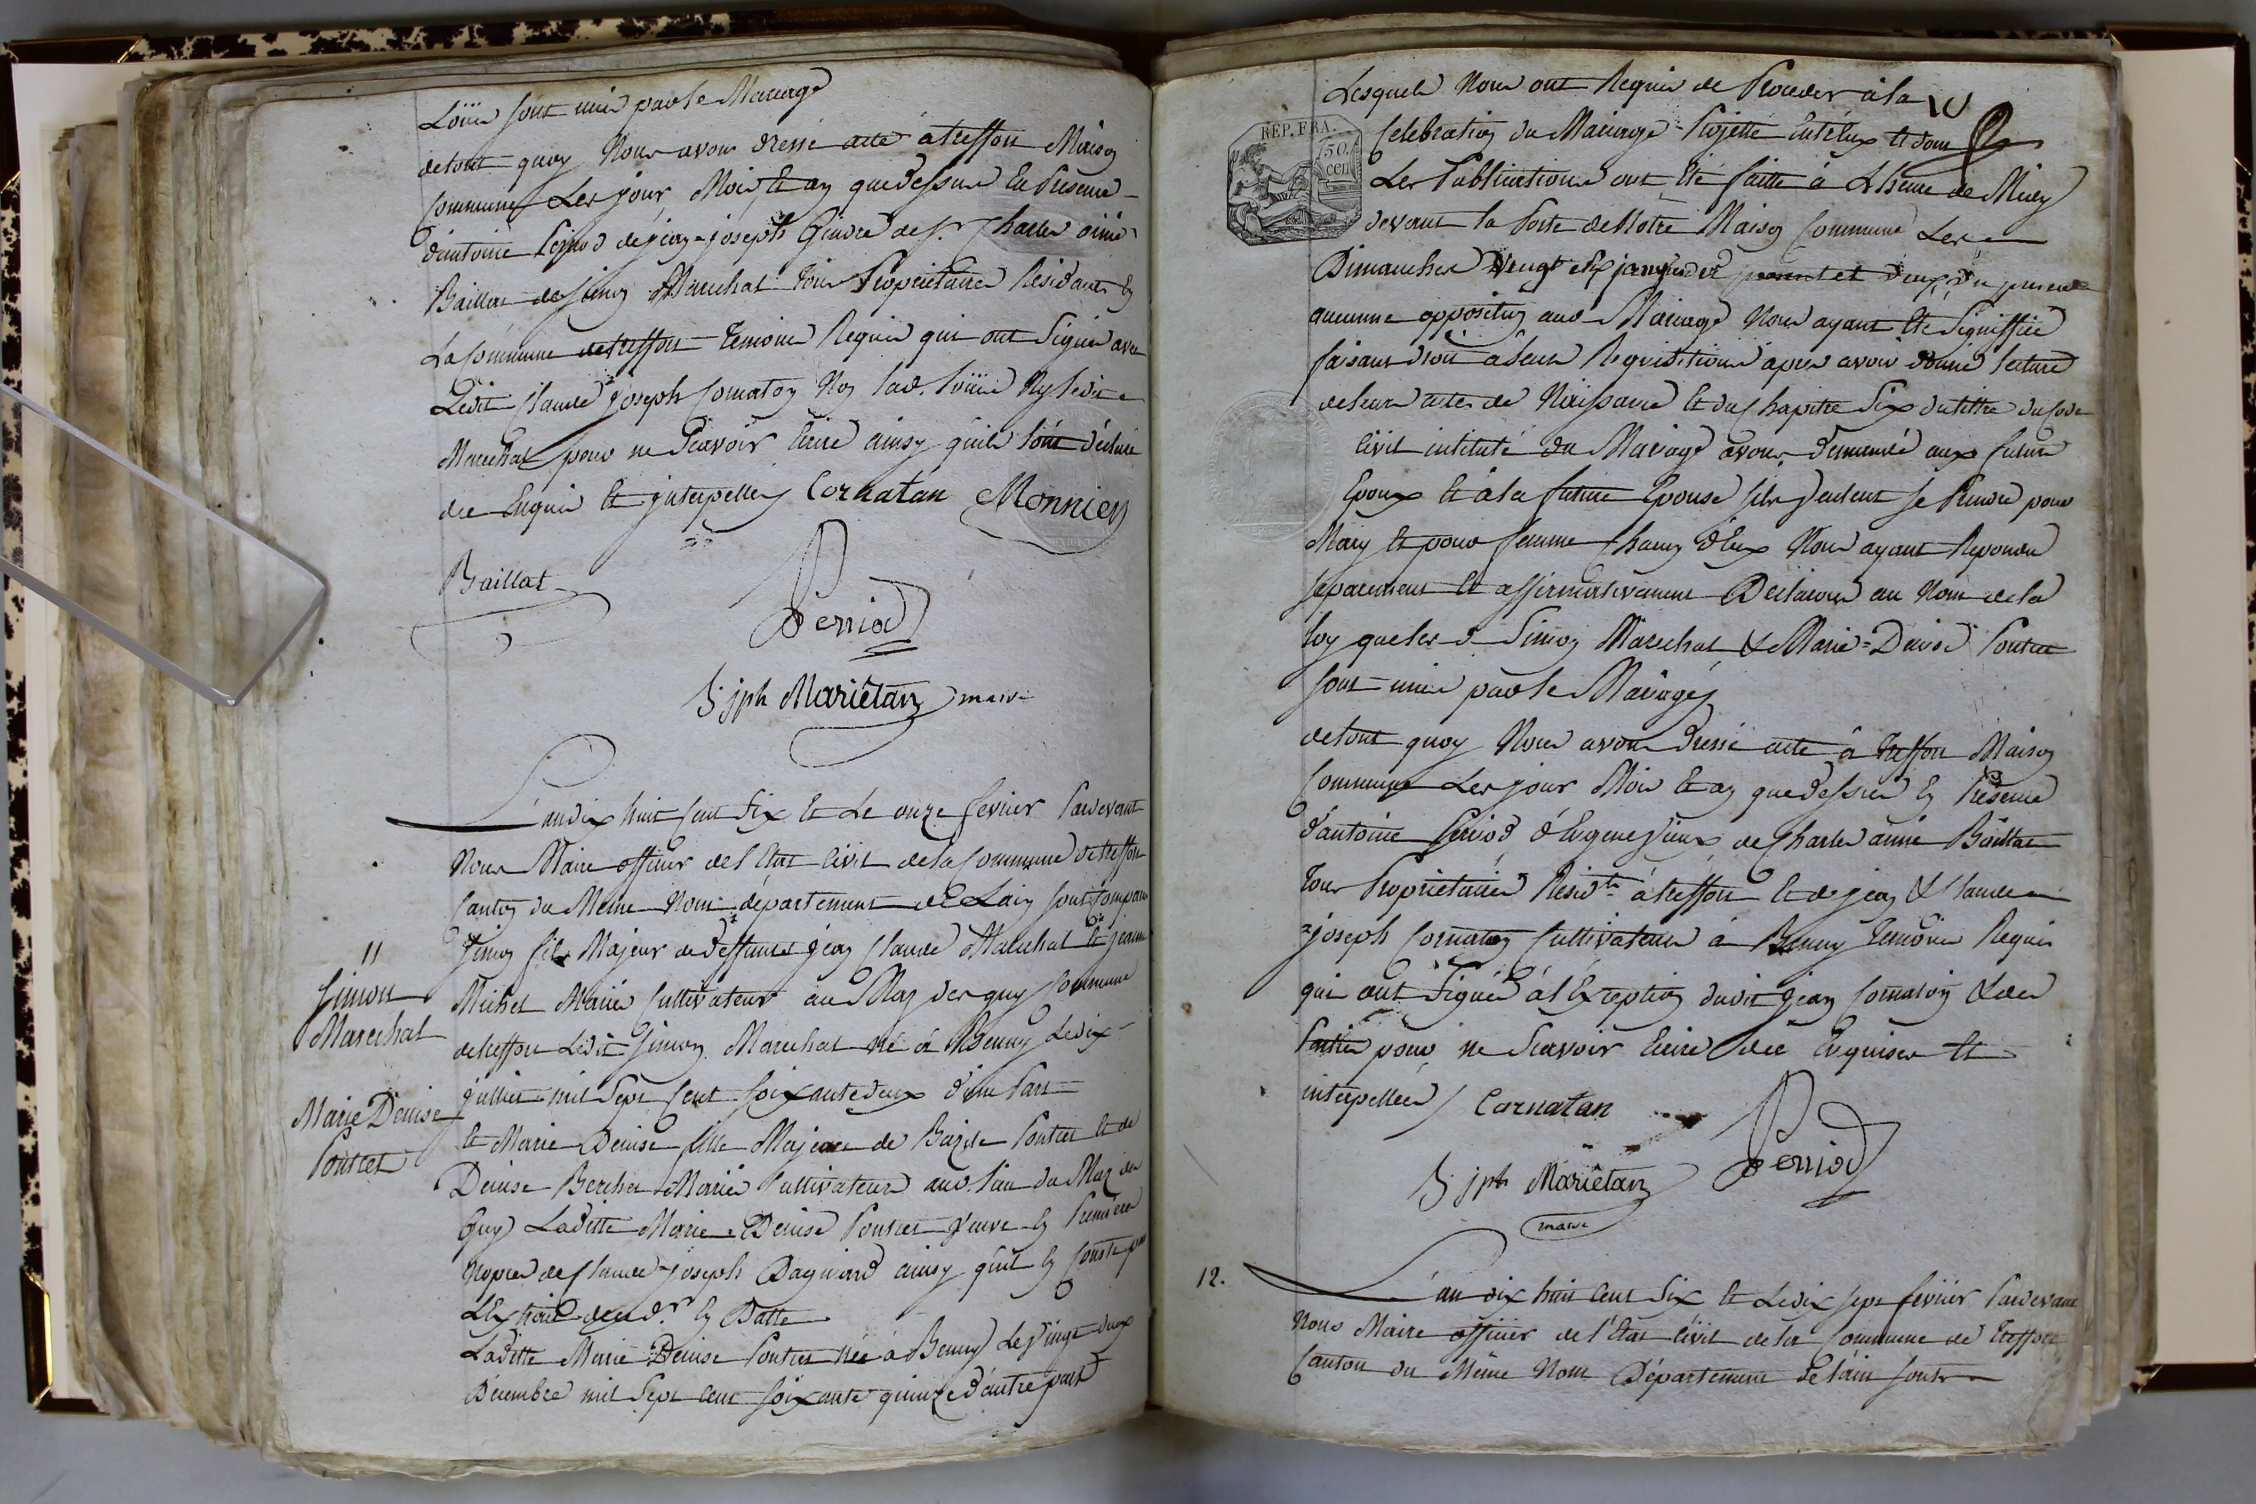 Loüise sont unis par le Mariage
detout quoy Nous avons dressé acte a treffort Maison
Commune Les jour Mois et an que dessus En Presence
d'antoine Perriod de jean-joseph de Sr. Charles aimé
Baillat de Simon Marechal tous Proprietaires Residants En
La Commune de treffort temoins Requis qui ont Signés avec
Ledit Claude joseph Cornaton Non lad. Loüise Ny ledit
Marechal pour ne Scavoir Ecrire ainsy quils l'ont déclaré
de Enquis et jnterpellés Cornatan Monnier
Baillat
Perriod
S. jph Mariêtan maire
L'an dix huit Cent Six et Le onze fevrier Pardevant
Nous Maire officier de l'Etat Civil de la Commune de treffort
Canton du Meme Nom département de Lain sont Comparus
Simon fils Majeur de deffunts jean Claude Marechal et jeanne
Michel Mariés Cultivateurs au Maz des guy Commune
detreffort Ledit Simon Marechal né à Benny Le dix
juillet mil Sept Cent soixante deux d'une Part
Et Marie Denise fille Majeure de Bazile Pontet et de
Denise Berchet Mariés Cultivateurs aud. lieu du Maz des
Guy Laditte Marie Denise Pontet Veuve En Premiere
Nopces de Claude-joseph ainsy quil En Conste par
L'Extrait En Datte
Laditte Marie Denise Pontet Née à Benny Le Vingt deux
Décembre mil Sept Cent soixante quinze d'autre part
11
Simon
Marechal
Marie Denise
Pontet
Lesquels Nous ont Requis de Proceder à la
REP. FRA.
50.
cen
Celebration du Mariage Projetté entr'eux et dont
Les Publications ont Eté faitte à L'heure de Midy
devant la Porte de Notre Maison Commune Les
Dimanches Vingt six janvier et deux du present
aucunne opposition aud. Mariage Nous ayant Eté Signiffiée
faisant droit à leur Requisitions apres avoir donné lecture
de leurs actes de Naissance et du Chapitre Six du tittre du Code
Civil intitulé du Mariage avons demandé aux futur
Epoux et à la future Epouse sils Veulent se Prendre pour
Mary et pour femme Chacun d'Eux Nous ayant Repondu
separement et affirmativement Declarons au Nom de la
loy que les d. Simon Marechal & Marie-Denise Pontet
sont unis par le Mariage
detout quoy Nous avons dressé acte à treffort Maison
Commune Les jour Mois et an que dessus En Presence
d'antoine Perriod d'Eugene de Charles aimé Baillat
tous Proprietaires Residts. à treffort et de jean & Claude
joseph Cornaton Cultivateurs à Benny temoins Requis
qui ont Signés à l'Exception dudit jean Cornaton & des
Parties pour ne Scavoir Ecrire de Enquises et
interpellées Cornatan
Perriod
S. jph Mariêtan
maire
12.
L'an dix huit Cent Six et Le dix sept fevrier Pardevant
Nous Maire officier de l'Etat Civil de la Commune de treffort
Canton du Même Nom Département de l'ain sont